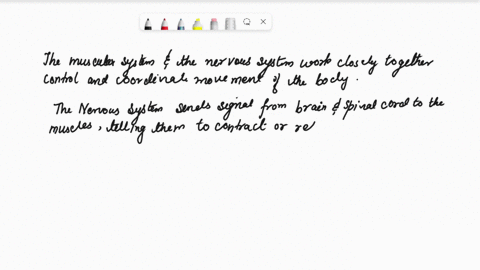 The muscular system & the nervous system work closely together
control and coordinate movement of the body.
The Nervous System sends signal from brain & spinal cord to the
muscles, telling them to contract or re